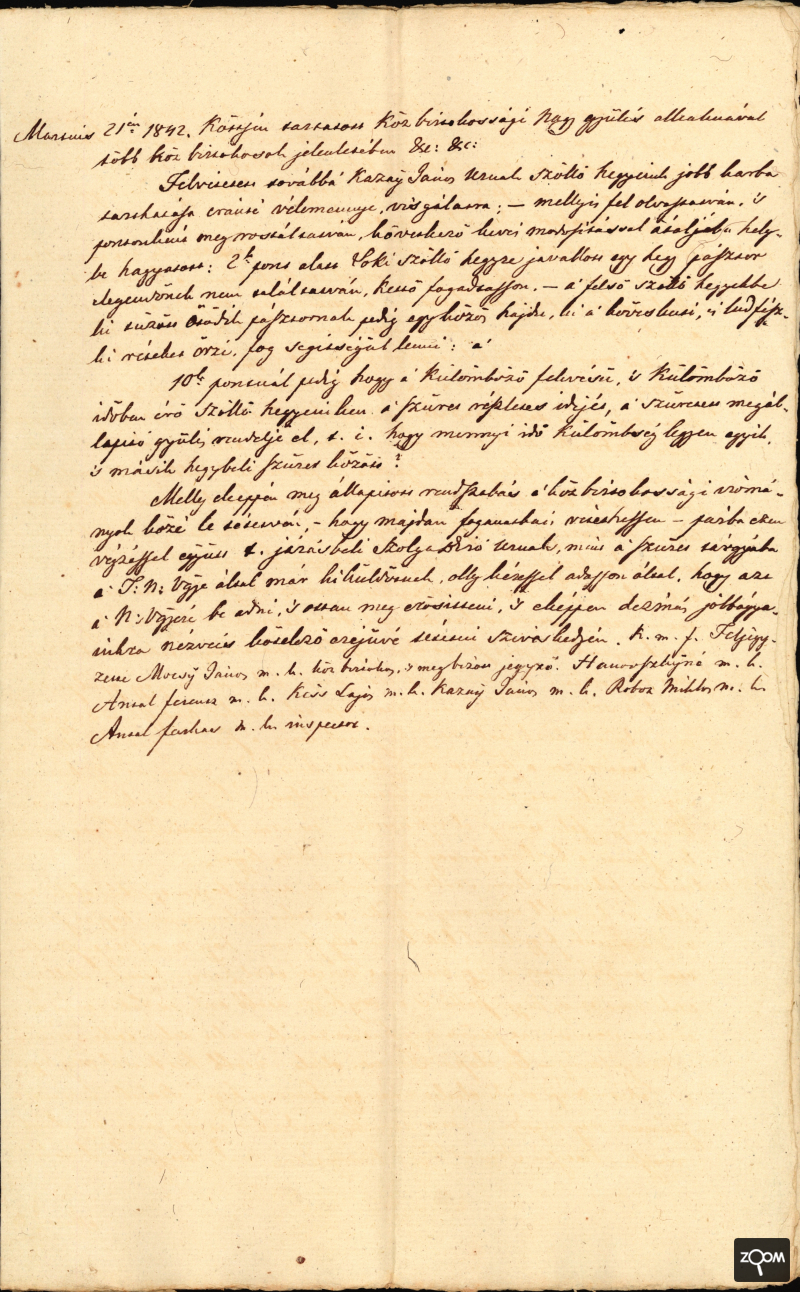 Martius 21én 1842. Kőttsén tartatott köz birtokossági Nagy gyülés alkalmával
több köz birtokosok jelenlétében &c: &c:
Felvétetett továbbá Kazay János Urnak Szőllő hegyeink jobb karba
tarthatása eránti véleménnye, visgálatra; – mellyis fel olvastatván, 's
pontonként meg rostáltatván, következő kevés modosítással átaljába hely-
be hagyatott: 2k pont alatt Loki szőllő hegyre javallott egy hegy pásztor
elegendőnek nem találtatván, kettő fogadtasson. – a' felső szőllő hegyekbe
ki tüzött ötödik pásztornak pedig egy közös hajdu, ki a'
ki réteket őrzi, fog segítségül lenni: a'
10k pontnál pedig hogy a' külömböző fekvésü, 's külömböző
időben érő Szőllő hegyeinken a' szüret részletes idejét, a' szüretet megál-
lapító gyülés rendelje el, t. i. hogy mennyi idő külömbség legyen egyik,
's másik hegybeli szüret között?
Melly eképpen meg állapított rendszabás a' köz birtokossági iromá-
nyok közé le tétetvén, – hogy majdan foganatba is vétethessen – párba ezen
végzéssel együtt t. járásbeli Szolga Biró Urnak, mint a' szüret tárgyába
a' T: N: Vgye által már ki küldöttnek, olly kéréssel adasson által, hogy azt
a' N: Vgyére be adni, 's ottan meg erősítteni, 's eképpen dezmás jobbágya-
inkra nézve is kötelező erejüvé tétetni sziveskedjen. K. m. f. Feljegy-
zette Mocsy János m. k. köz birtokos, 's megbizott jegyző. m. k.
Antal ferencz m. k. Kiss Lajos m. k. Kazay János m. k. Roboz Miklós m. k.
Antal farkas m. k. inspector.
ZOOM